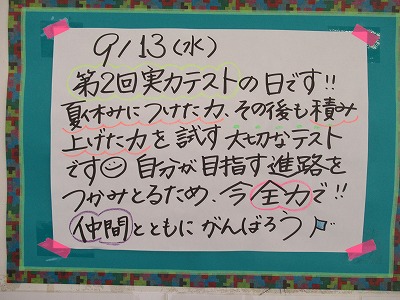 9/13(水)
第2回実力テストの日です!!
夏休みにつけた力、その後も積み
上げた力を試す大切なテスト
です☺ 自分が目指す進路を
つかみとるため、今全力で!!
仲間とともにがんばろう